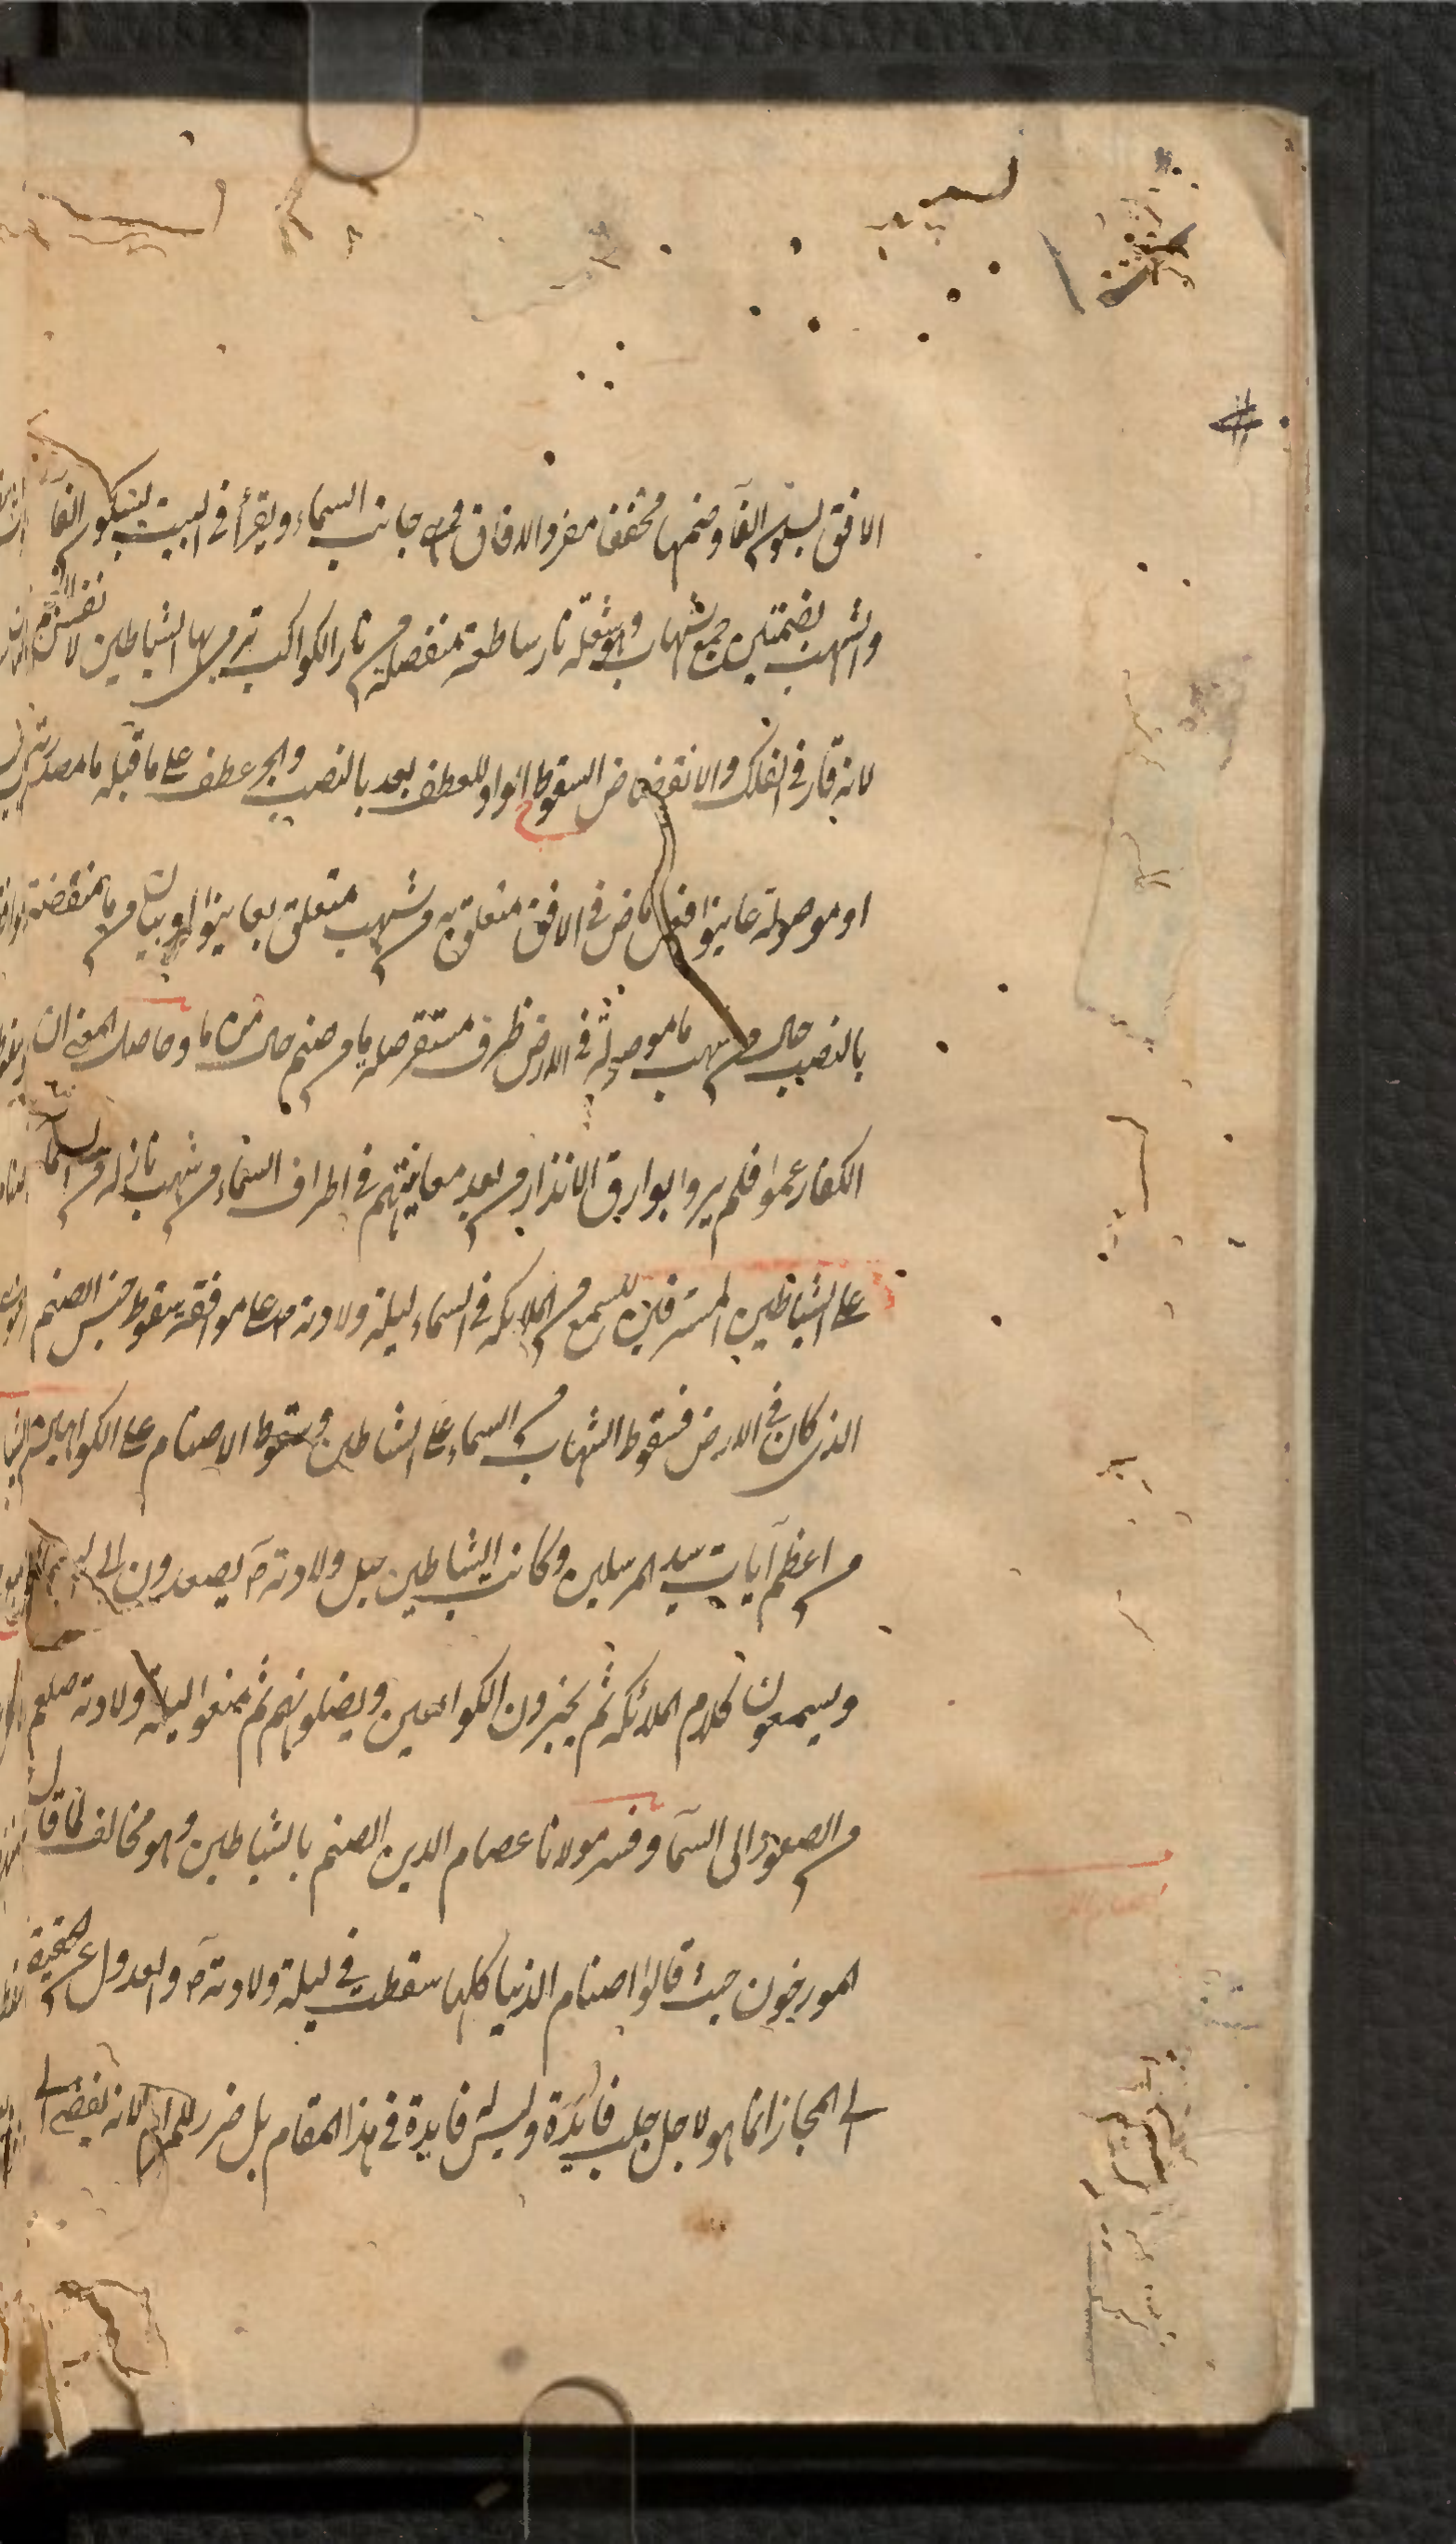 الافق بسكون الفآ وضمها مخفف مفرد الافاق وهى جانب السماء ويقرأ فى البيت بسكون الفآ
والشهب بضمتين جمع شهاب وهو شعلة نار ساطعة منفصلة من نار الكواكب ترمى بها الشياطين لا نفس
لانه قار فى الفلك والانقضاض السقوط الواو للعطف بعد بالنصب والجر عطف على ما قبله ما مصدرية
او موصولة عاينوا فعل ماض فى الافق متعلق به من شهب متعلق بعاينوا او بيان من ما منقضة
بالنصب حال من شهب ما موصولة فى الارض ظرف مستقر صلة ما من صنم حال من ما وحاصل المعنى ان
الكفار عموا فلم يروا بوارق الانذار من بعد معاينتهم فى اطراف السماء من شهب نازلة من السما
على الشياطين المسترقين للسمع من الملائكة فى السماء ليلة ولادته م على موافقة سقوط جنس الصنم
الذى كان فى الارض فسقوط الشهاب من السماء على الشياطين وسقوط الاصنام على
من اعظم آيات سيد المرسلين وكانت الشياطين قبل ولادته م يصعدون الى
ويسمعون كلام الملائكة ثم يخبرون الكواهين ويضلونهم ثم منعوا ليلة ولادته صلعم
من الصعود الى السمآ وفسر مولانا عصام الدين الصنم بالشياطين وهو مخالف لما قال
المورخون حيث قالوا اصنام الدنيا كلها سقطت فى ليلة ولادته م والعدول عن الحقيقة
الى المجاز انما هو لاجل جلب فائدة وليس له فايدة فى هذا المقام بل ضرر للمرام لانه يفضى الى